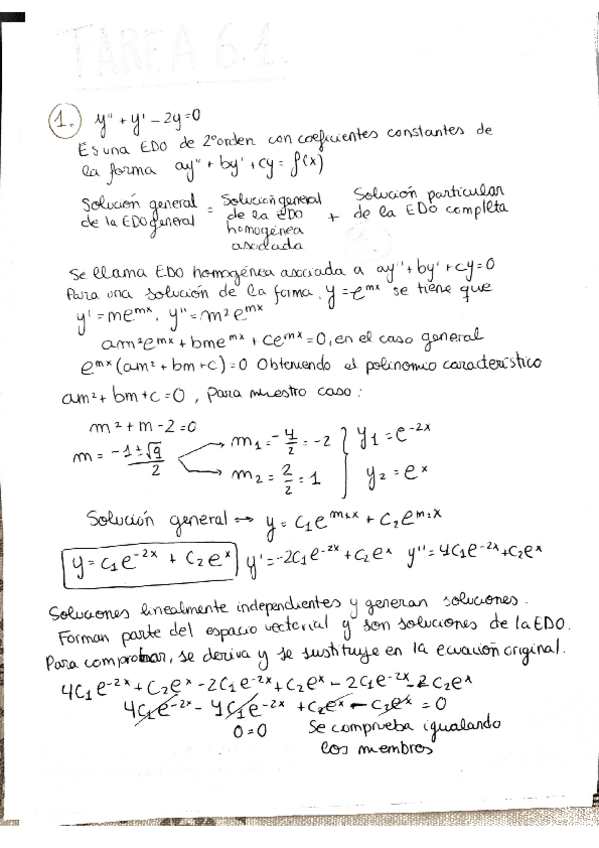 TAREA 6.1.
1. y'' + y' - 2y = 0
Es una EDO de 2º orden con coeficientes constantes de
la forma ay'' + by' + cy = f(x)
Solución general de la EDO general = Solución general de la EDO homogénea asociada + Solución particular de la EDO completa
Se llama EDO homogénea asociada a ay'' + by' + cy = 0
Para una solución de la forma y = e^mx se tiene que
y' = me^mx, y'' = m²e^mx
am²e^mx + bme^mx + ce^mx = 0, en el caso general
e^mx (am² + bm + c) = 0 Obteniendo el polinomio característico
am² + bm + c = 0, para nuestro caso:
m² + m - 2 = 0
m = (-1 ± √9)/2
m₁ = -4/2 = -2 y₁ = e^-2x
m₂ = 2/2 = 1 y₂ = e^x
Solución general → y = c₁e^m₁x + c₂e^m₂x
y = c₁e^-2x + c₂e^x y' = -2c₁e^-2x + c₂e^x y'' = 4c₁e^-2x + c₂e^x
Soluciones linealmente independientes y generan soluciones.
Forman parte del espacio vectorial y son soluciones de la EDO.
Para comprobar, se deriva y se sustituye en la ecuación original.
4c₁e^-2x + c₂e^x - 2c₁e^-2x + c₂e^x - 2c₁e^-2x - 2c₂e^x
4c₁e^-2x - 4c₁e^-2x + c₂e^x - c₂e^x = 0
0 = 0 Se comprueba igualando
los miembros